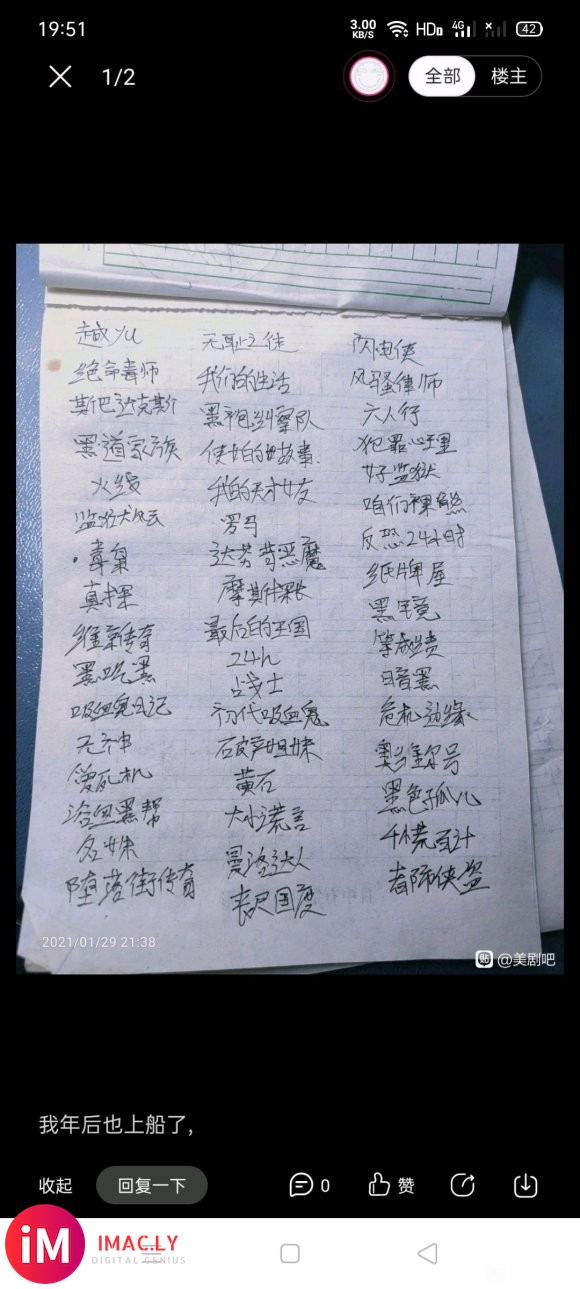 19:51
3.00 KB/S
HD
4G
42
1/2
全部
楼主
越yu
绝命毒师
斯巴达克斯
黑道家族
火线
监狱风云
毒枭
真探
维京传奇
黑吃黑
吸血鬼日记
浴血黑帮
名姝
堕落街传奇
无耻之徒
我们的生活
黑袍纠察队
使女的故事
我的天才女友
罗马
达芬奇恶魔
摩斯探长
最后的王国
24h
战士
初代吸血鬼
破产姐妹
黄石
大小谎言
丧尸国度
闪电侠
风骚律师
六人行
犯罪心理
好监狱
咱们裸熊
反恐24小时
纸牌屋
黑镜
暗黑
危机边缘
奥维尔号
黑色孤儿
千谎百计
都市侠盗
2021/01/29 21:38
贴 @美剧吧
我年后也上船了,
收起
回复一下
0
赞
iM
IMAC.LY
DIGITAL GENIUS